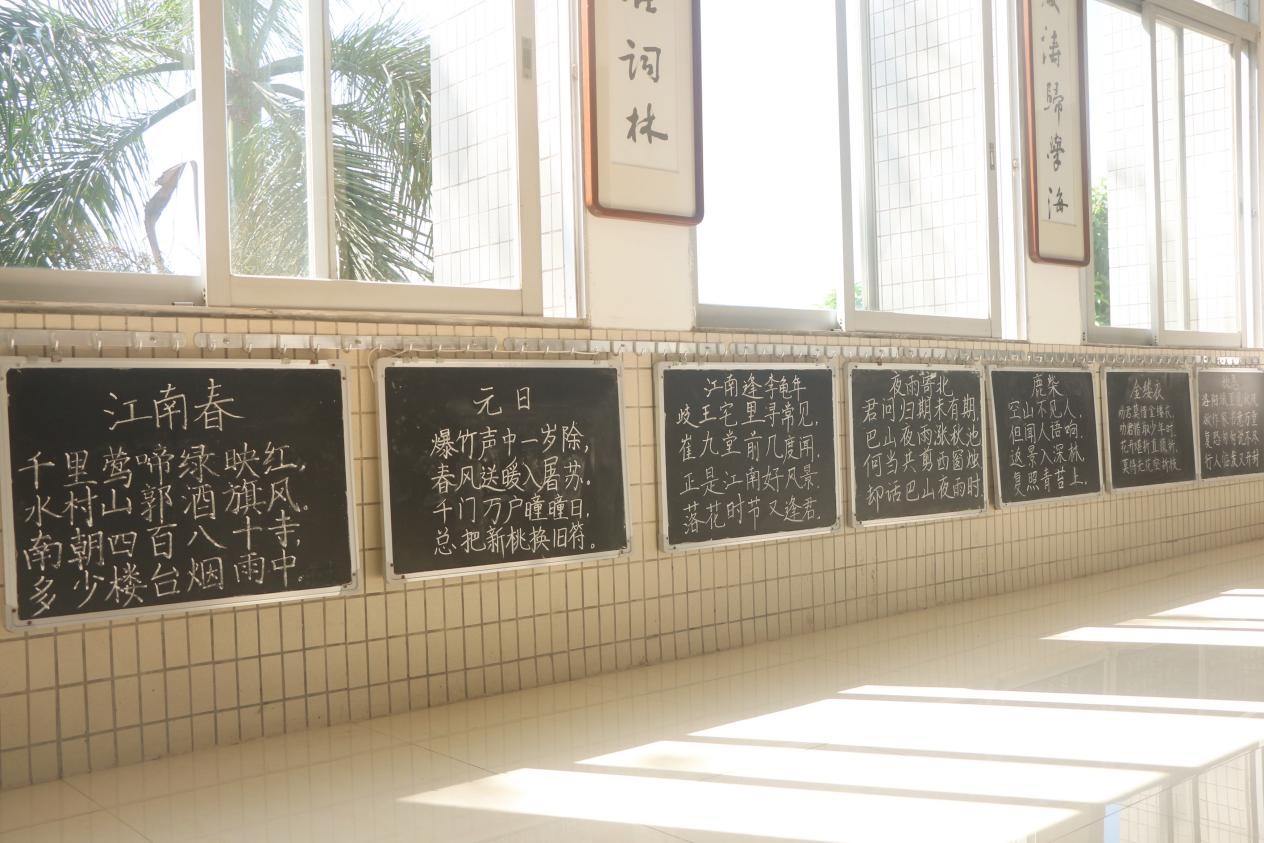 词林
濤歸學海
江南春
千里莺啼绿映红,
水村山郭酒旗风.
南朝四百八十寺,
多少楼台烟雨中。
元日
爆竹声中一岁除,
春风送暖入屠苏.
千门万户曈曈日,
总把新桃换旧符。
江南逢李龟年
岐王宅里寻常见,
崔九堂前几度闻.
正是江南好风景
落花时节又逢君.
夜雨寄北
君问归期未有期,
巴山夜雨涨秋池
何当共剪西窗烛
却话巴山夜雨时.
鹿柴
空山不见人,
但闻人语响.
返景入深林,
复照青苔上.
金缕衣
劝君莫惜金缕衣,
劝君惜取少年时.
花开堪折直须折,
莫待无花空折枝
洛阳城里见秋风
欲作家书意万重
复恐匆匆说不尽
行人临发又开封